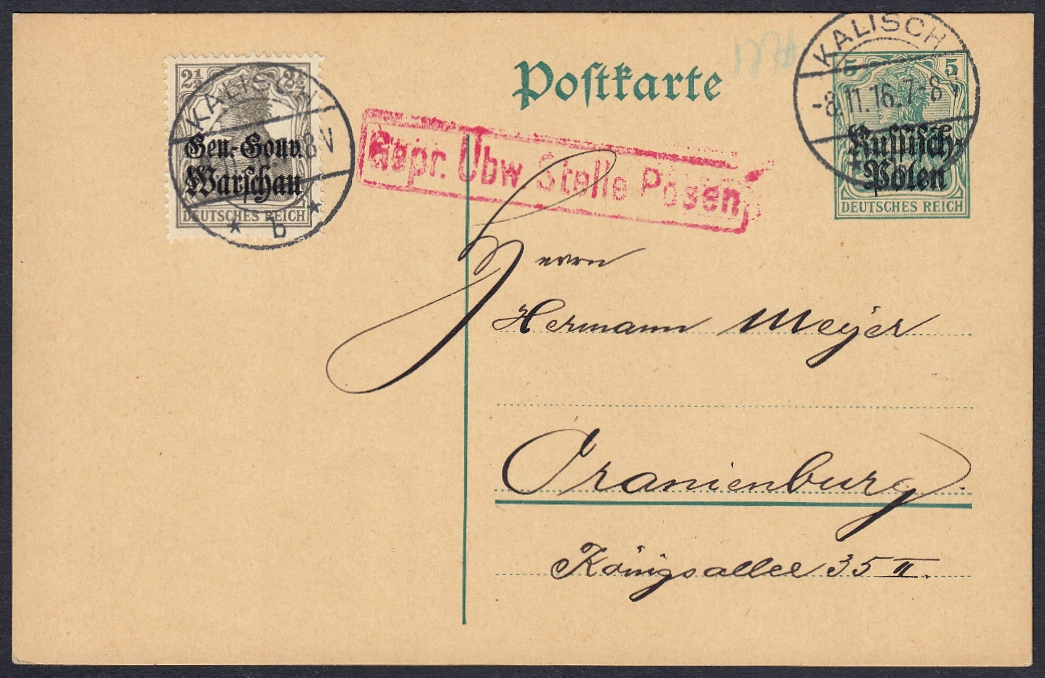 Postkarte
2½ 2½
KALISCH
8V
Gen.-Gouv.
Warschau
DEUTSCHES REICH
* b *
Gepr. Übw. Stelle Posen
KALISCH
-8.11.16.7-8V
5 5
Russisch-
Polen
DEUTSCHES REICH
Herrn
Hermann Meyer
Oranienburg.
Königsallee 35 II.